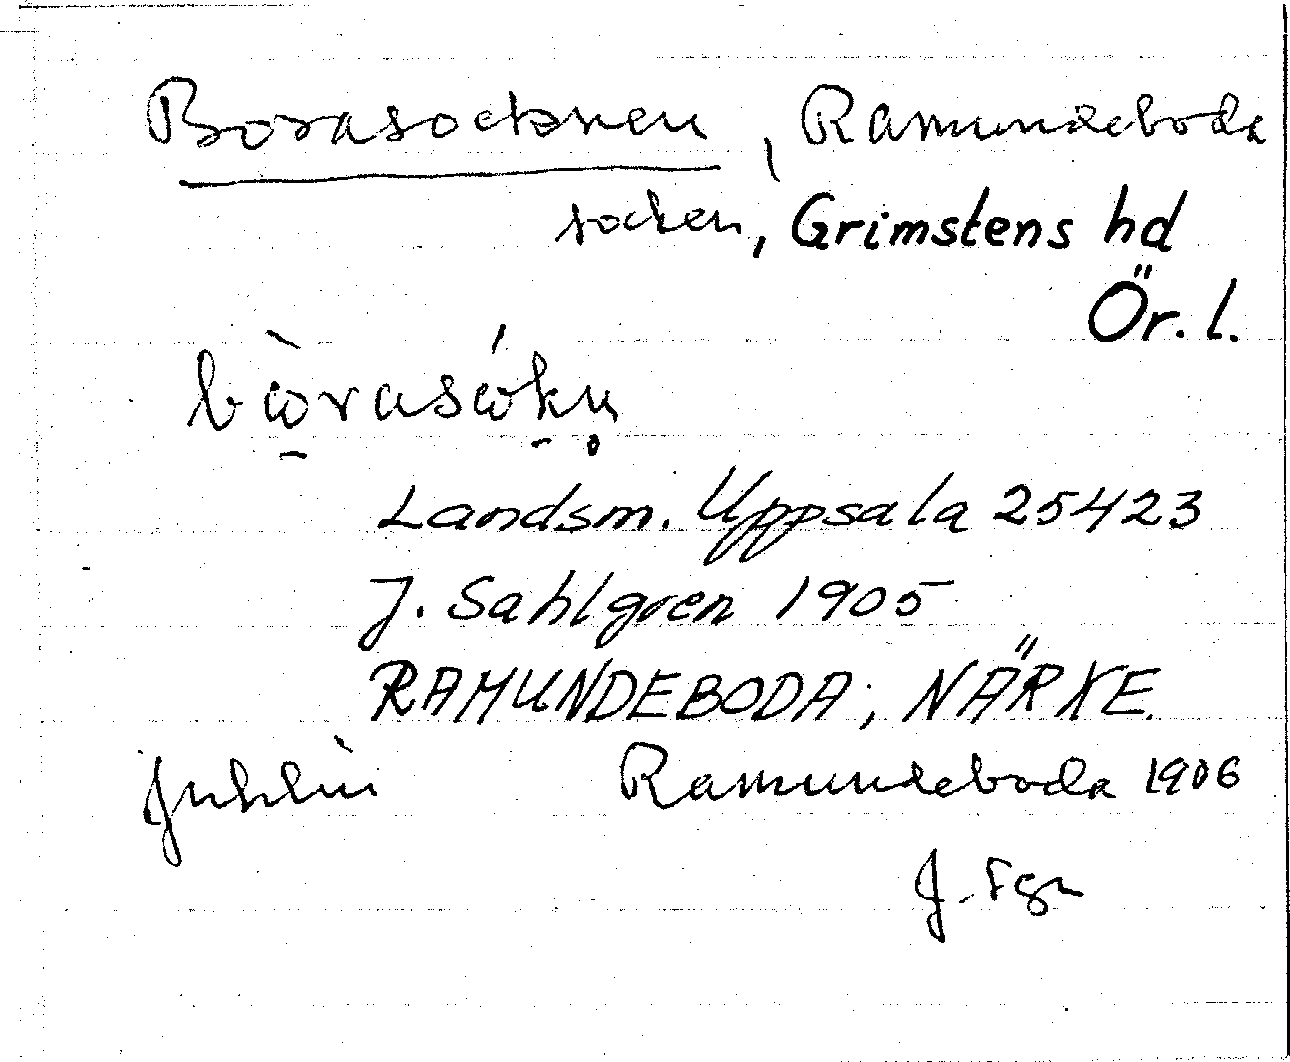 Borasocknen, Ramundeboda
socken, Grimstens hd
Ör. l.
Landsm. Uppsala 25423
J. Sahlgren 1905
RAMUNDEBODA; NÄRKE.
Juhlin Ramundeboda 1906
J. Sgn